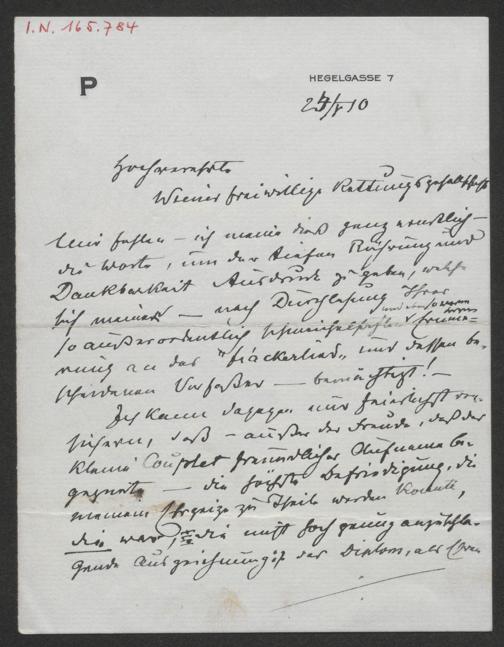 I.N. 165.784
P
HEGELGASSE 7
24/V 10
Hochverehrte
Wiener freiwillige Rettungsgesellschaft
Mir fehlen – ich meine dieß ganz ernstlich –
die Worte, um der tiefen Rührung und
Dankbarkeit Ausdruck zu geben, welche
sich meiner – nach Durchlesung Ihrer
so außerordentlich schmeichelhaften und ebenso warmen Erinne-
rung an das "Fiakerlied" und dessen be-
scheidenen Verfaßer – bemächtigt! –
Ich kann dagegen nur feierlichst ver-
sichern, daß – außer der Freude, daß das
kleine Couplet freundlicher Aufname be-
gegnete – die höchste Befriedigung, die
meinem Ehrgeize zu Theil werden konnte,
die war, die nicht hoch genug anzuschla-
gende Auszeichnung das Diplom, als Ehren